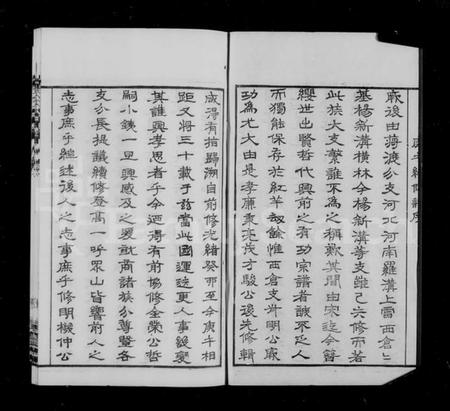 庚午續修譜序
厥後由蔣渡分支河北河南羅溝上雷西倉仁
基楊新溝橫林分楊新溝等支雖已六修而著
此族大支繁誰不為之稱歎其間由宋迄今簪
纓世出賢哲代興前之有功宗譜者誠不乏人
而獨能保存於紅羊劫餘惟西倉支卅明公厥
功為尤大由是孝廉秉亮茂才駿公後先修輯
咸得有指歸溯自前修光緒癸卯至今庚午相
距又將三十載于茲當此國運迭更人事變
其誰興孝思者乎今迺得有前協修金榮公哲
嗣小錢一旦興感及之爰就商諸族分尊暨各
支分長提議續修登高一呼眾山皆響前人之
志事庶乎繼述後人之志事庶乎修明機仲公